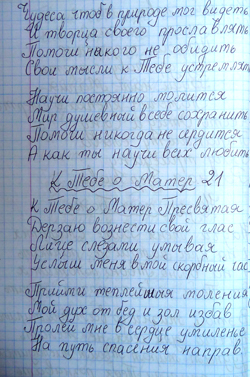 Чудеса чтоб в природе мог видеть
И творца своего прославлять
Помоги никого не обидить
Свои мысли к Тебе устремлять
Научи постоянно молится
Мир душевный в себе сохранить
Помоги никогда не сердится
А как ты научи всех любить
К Тебе о Матер 21
К Тебе о Матер Пресвятая
Дерзаю вознести свой глас
Лице слезами умывая
Услыш меня в мой скорбный час
Прийми теплейшыя моления
Мой дух от бед и зол избав
Пролей мне в сердце умиление
На путь спасения направ.